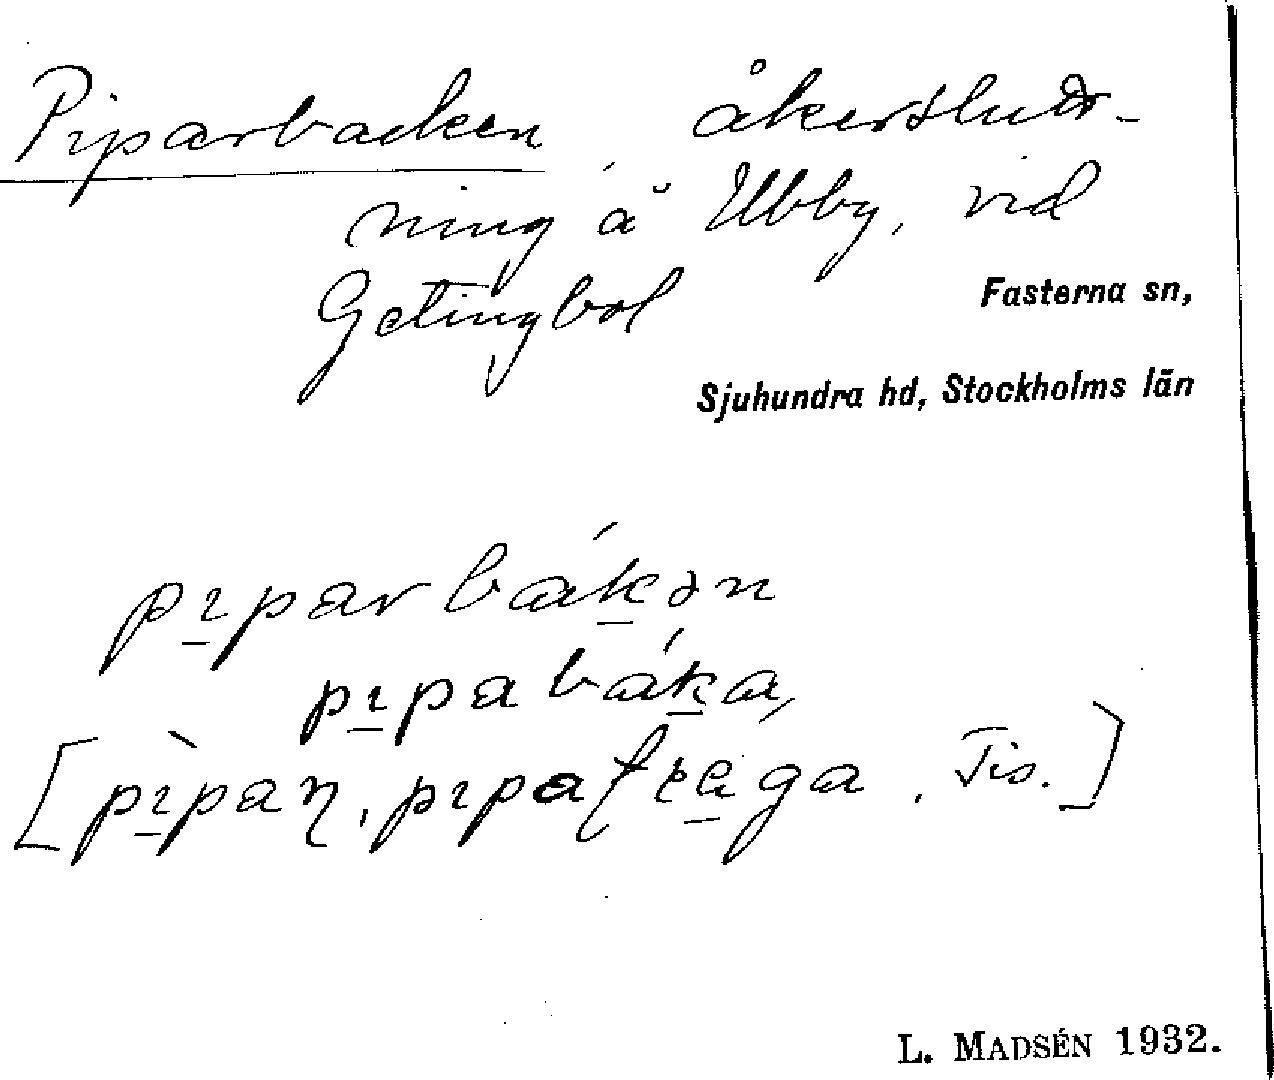 Piparbacken åkerslutt-
ning å Ubby, vid
Getingbol
Fasterna sn,
Sjuhundra hd, Stockholms län
pıparbákən
pıpabáka,
[pı̀paꞃ, pıpa , Tis.]
L. MADSÉN 1932.